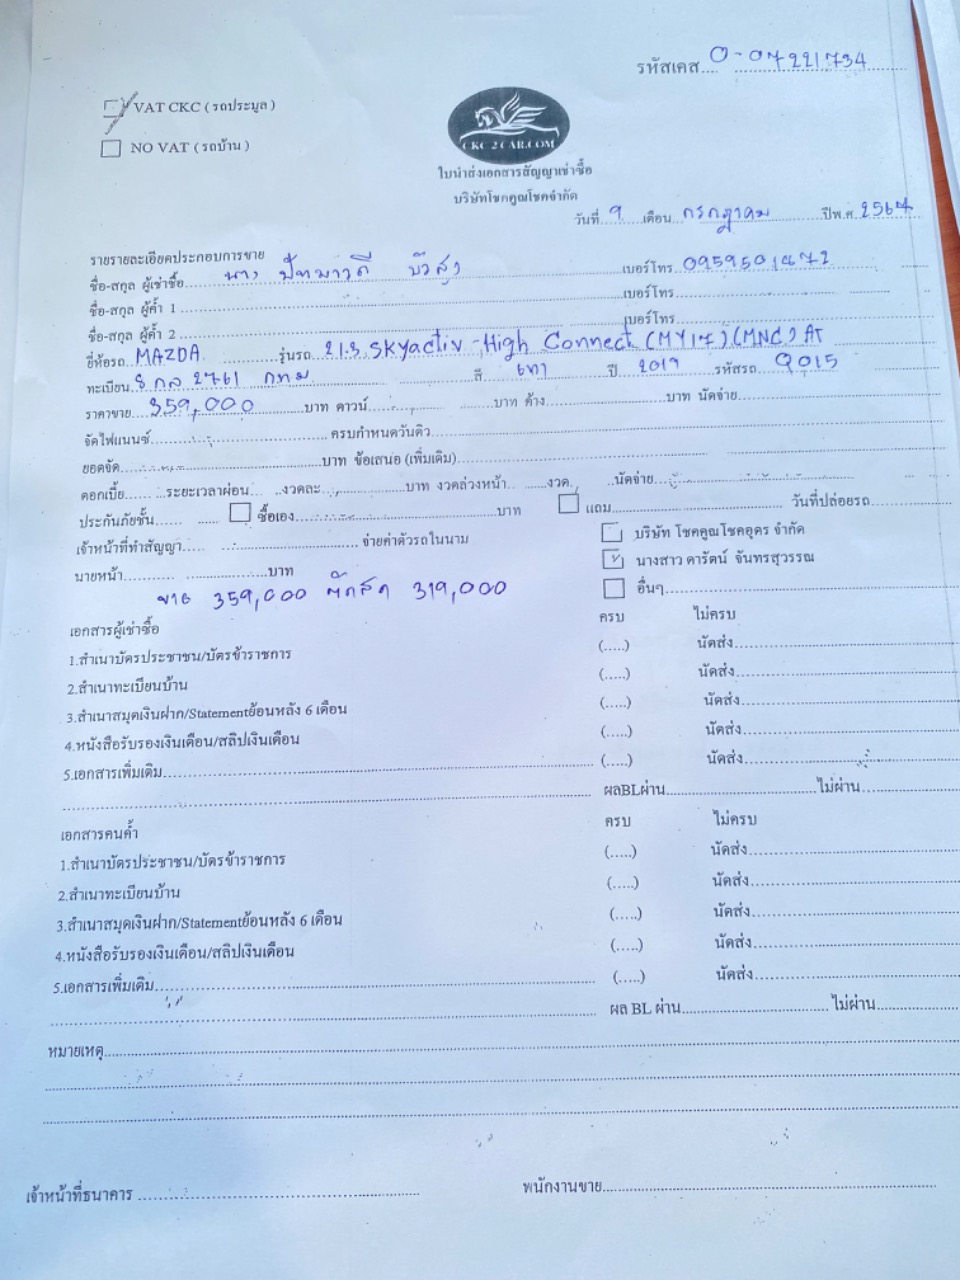 รหัสเคส....0-07221734
VAT CKC ( รถประมูล )
NO VAT ( รถบ้าน )
CKC 2 CAR.COM
ใบนำส่งเอกสารสัญญาเช่าซื้อ
บริษัทโชคคูณโชคจำกัด
วันที่ 9 เดือน กรกฎาคม ปีพ.ศ. 2567
รายรายละเอียดประกอบการขาย
ชื่อ-สกุล ผู้เช่าซื้อ นาง ปัทมาวดี บัวสง เบอร์โทร
ชื่อ-สกุล ผู้ค้ำ 1 เบอร์โทร
ชื่อ-สกุล ผู้ค้ำ 2 เบอร์โทร
ยี่ห้อรถ MAZDA รุ่นรถ 2 1.3 Skyactiv-High Connect (MY17) (MNC) AT
ทะเบียน 8 กล 2761 กทม สี เทา ปี 2019 รหัสรถ Q015
ราคาขาย 359,000 บาท ดาวน์ บาท ค้าง บาท นัดจ่าย
จัดไฟแนนซ์ ครบกำหนดวันคิว
ยอดจัด บาท ข้อเสนอ (เพิ่มเติม)
ดอกเบี้ย ระยะเวลาผ่อน งวดละ บาท งวดล่วงหน้า งวด นัดจ่าย
ประกันภัยชั้น ซื้อเอง บาท แถม วันที่ปล่อยรถ
เจ้าหน้าที่ทำสัญญา จ่ายค่าตัวรถในนาม บริษัท โชคคูณโชคอุดร จำกัด
นายหน้า บาท นางสาว ดารัตน์ จันทรสุวรรณ
ขาย 359,000 ตัดสด 319,000 อื่นๆ
เอกสารผู้เช่าซื้อ ครบ ไม่ครบ
1.สำเนาบัตรประชาชน/บัตรข้าราชการ (.....) นัดส่ง
2.สำเนาทะเบียนบ้าน (.....) นัดส่ง
3.สำเนาสมุดเงินฝาก/Statementย้อนหลัง 6 เดือน (.....) นัดส่ง
4.หนังสือรับรองเงินเดือน/สลิปเงินเดือน (.....) นัดส่ง
5.เอกสารเพิ่มเติม (.....) นัดส่ง
ผลBLผ่าน ไม่ผ่าน
เอกสารคนค้ำ ครบ ไม่ครบ
1.สำเนาบัตรประชาชน/บัตรข้าราชการ (.....) นัดส่ง
2.สำเนาทะเบียนบ้าน (.....) นัดส่ง
3.สำเนาสมุดเงินฝาก/Statementย้อนหลัง 6 เดือน (.....) นัดส่ง
4.หนังสือรับรองเงินเดือน/สลิปเงินเดือน (.....) นัดส่ง
5.เอกสารเพิ่มเติม (.....) นัดส่ง
ผล BL ผ่าน ไม่ผ่าน
หมายเหตุ
เจ้าหน้าที่ธนาคาร พนักงานขาย